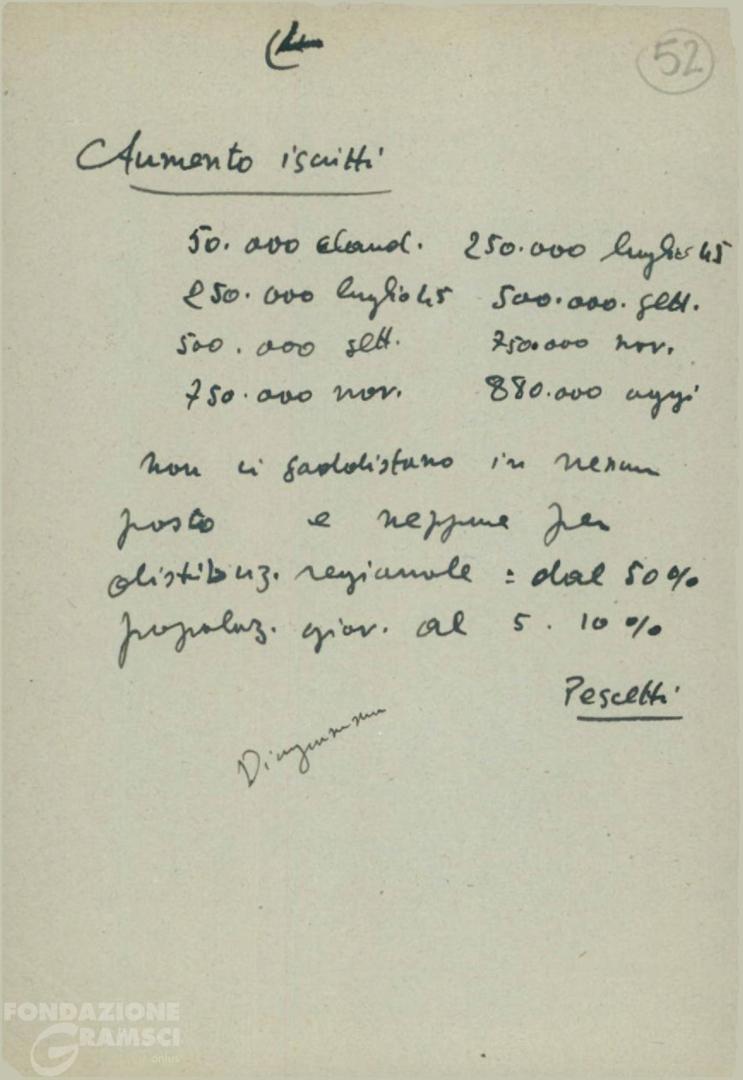 52
Aumento iscritti
50.000 cland. 250.000 luglio 45
250.000 luglio 45 500.000. sett.
500.000 sett. 750.000 nov.
750.000 nov. 880.000 oggi
non ci soddisfano in nessun
posto e neppure per
distribuz. regionale : dal 50%
popolaz. giov. al 5. 10%
Pescetti
FONDAZIONE
GRAMSCI
onlus